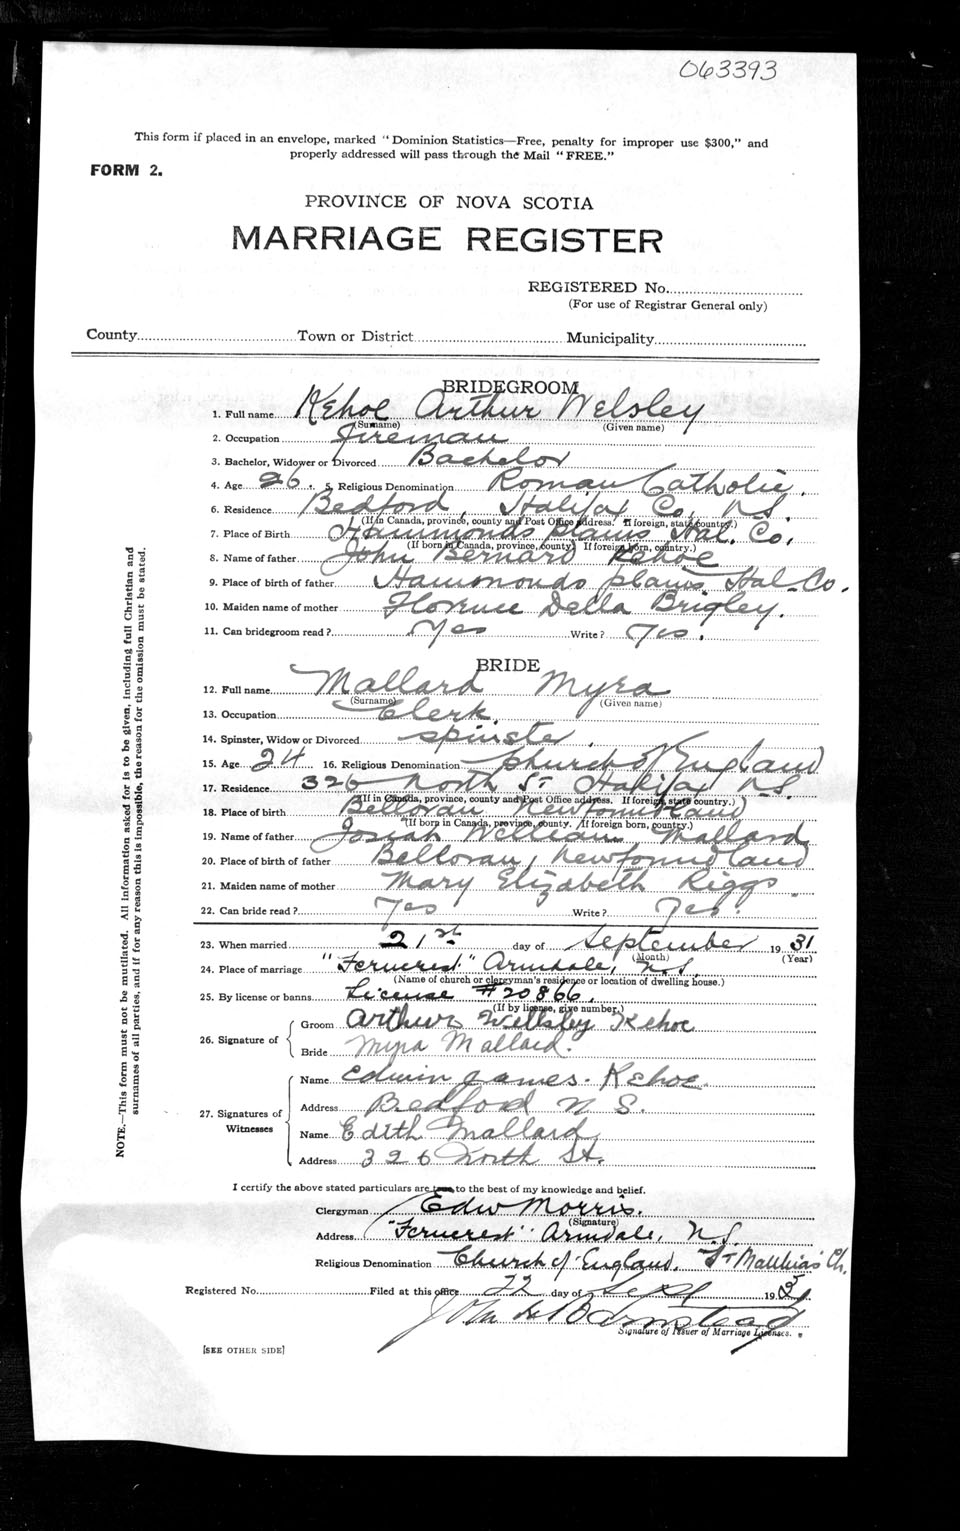 063393
This form if placed in an envelope, marked "Dominion Statistics—Free, penalty for improper use $300," and
properly addressed will pass through the Mail "FREE."
FORM 2.
PROVINCE OF NOVA SCOTIA
MARRIAGE REGISTER
REGISTERED No.
(For use of Registrar General only)
County Town or District Municipality
BRIDEGROOM
1. Full name Kehoe Arthur Welsley
(Surname) (Given name)
2. Occupation Fireman
3. Bachelor, Widower or Divorced Bachelor
4. Age 26. 5. Religious Denomination Roman Catholic.
6. Residence Bedford, Halifax Co, N.S.
(If in Canada, province, county and Post Office address. If foreign, state country.)
7. Place of Birth Hammonds plains Hal. Co.
(If born in Canada, province, county. If foreign born, country.)
8. Name of father John Bernard Kehoe
9. Place of birth of father Hammonds plains Hal. Co.
10. Maiden name of mother Florence Della Brigley.
11. Can bridegroom read? Yes Write? Yes.
BRIDE
12. Full name Mallard Myra
(Surname) (Given name)
13. Occupation Clerk.
14. Spinster, Widow or Divorced spinster.
15. Age 24 16. Religious Denomination Church of England
17. Residence 326 North St Halifax N.S.
(If in Canada, province, county and Post Office address. If foreign, state country.)
18. Place of birth Belloran Newfoundland
(If born in Canada, province, county. If foreign born, country.)
19. Name of father Josiah William Mallard
20. Place of birth of father Belloran, Newfoundland
21. Maiden name of mother Mary Elizabeth Riggs
22. Can bride read? Yes Write? Yes.
23. When married 21st day of September 1931
(Month) (Year)
24. Place of marriage "Ferncrest" Armdale, N.S.
(Name of church or clergyman's residence or location of dwelling house.)
25. By license or banns License #20866.
(If by license, give number.)
26. Signature of Groom Arthur Wellsley Kehoe
Bride Myra Mallard.
27. Signatures of Witnesses Name Edwin James. Kehoe.
Address Bedford N S.
Name Edith Mallard
Address 326 North St.
I certify the above stated particulars are true to the best of my knowledge and belief.
Clergyman Edw Morris.
(Signature)
Address "Ferncrest" Armdale, N.S.
Religious Denomination Church of England. St Matthias' Ch.
Registered No. Filed at this office 22 day of Sept 1931.
Signature of Issuer of Marriage Licenses.
[SEE OTHER SIDE]
NOTE.—This form must not be mutilated. All information asked for is to be given, including full Christian and
surnames of all parties, and if for any reason this is impossible, the reason for the omission must be stated.